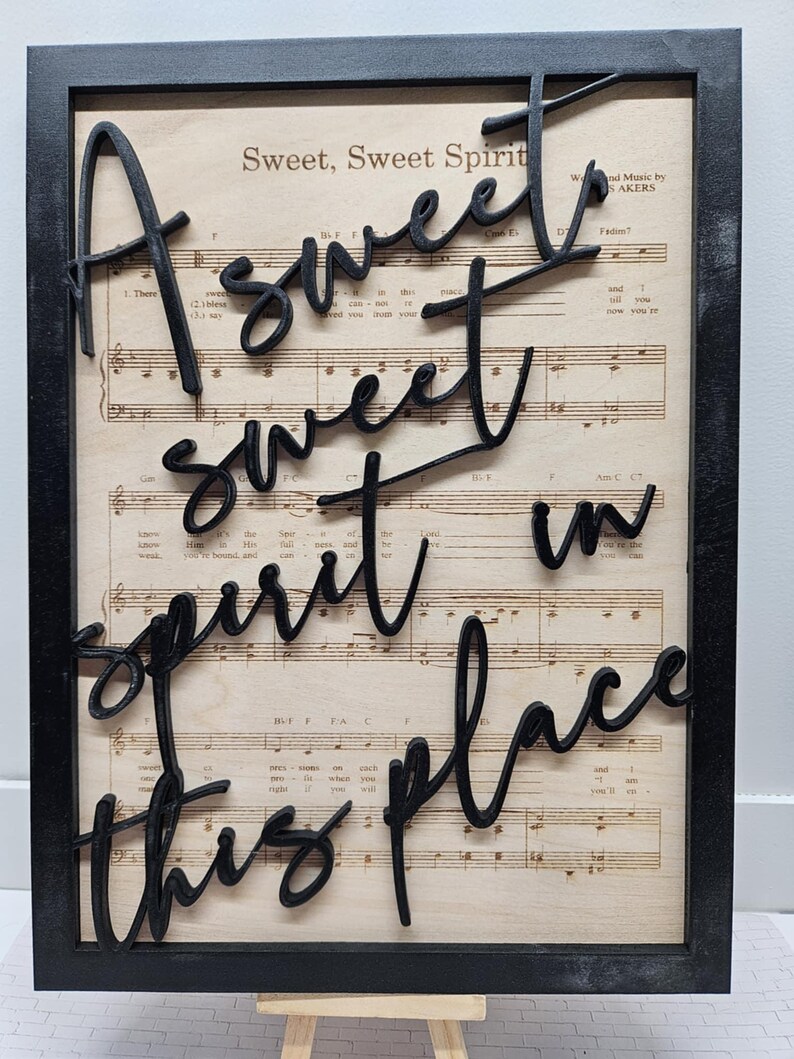 A sweet,
sweet
spirit in
this place
Sweet, Sweet Spirit
and Music by
AKERS
F B♭ F Cm6 E♭ D7 F♯dim7
1. There sweet, it in this place, and I
(2.) bless - can - not re till you
(3.) say saved you from your now you're
Gm F/C C7 F B♭/F F Am/C C7
know it's the Spir - it of the Lord.
know Him in His full - ness, and be - lieve. You're the
weak, you're bound, and can - en - ter you can
F B♭/F F F/A C F E♭
sweet ex - pres - sions on each and I
one to pro - fit when you "I am
right if you will you'll en -